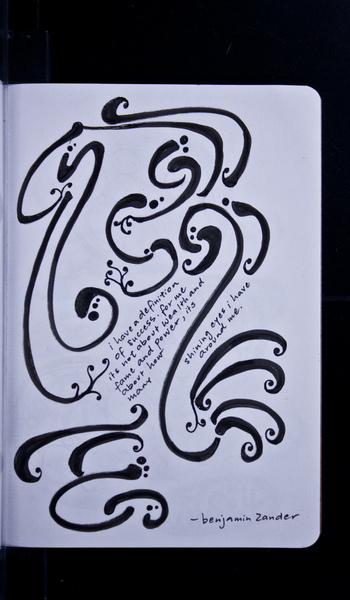 i have a definition
of success. for me
its not about wealth and
fame and power, its
about how
many
shining eyes i have
around me.
-benjamin Zander